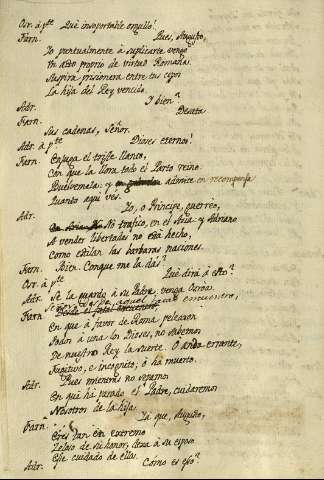 Osr. á pte Qué insoportable orgullo!
Farn. Pues, Augusto,
Yo puntualmente à suplicarte vengo
Un acto proprio de virtud Romana.
Suspira prisionera entre tus cepos
La hija del Rey vencido.
Adr. Y bien?
Farn. Desata
Sus cadenas, Señor.
Adr. à pte Dioses eternos!
Farn. Enjuga el triste llanto,
Con que la llora todo el Parto reino.
Buelvemela: y admite en recompensa
Quanto aqui vés.
Adr. Yo, o Principe, guerreo,
No trafico, en el Asia: y Adriano
A vender libertades no está hecho,
Como estilan las barbaras naciones.
Farn. Bien. Conque me la dás?
Osr. à pte Qué dirá à esto?
Adr. Se la guardo à su Padre, venga Osroa.
Farn. Señor, desde aquel fatal encuentro,
En que à favor de Roma pelearon
Todos á una los Dioses, no sabemos
De nuestro Rey la suerte. O anda errante,
Fugitivo, è incognito; ó ha muerto.
Adr. Pues mientras no sepamos
En qué há parado el Padre, cuidaremos
Nosotros de la hija.
Farn. Ya que, Augusto,
Eres tan en extremo
Zeloso de su honor, dexa à su esposo
Esse cuidado de ella.
Adr. Cómo es eso?